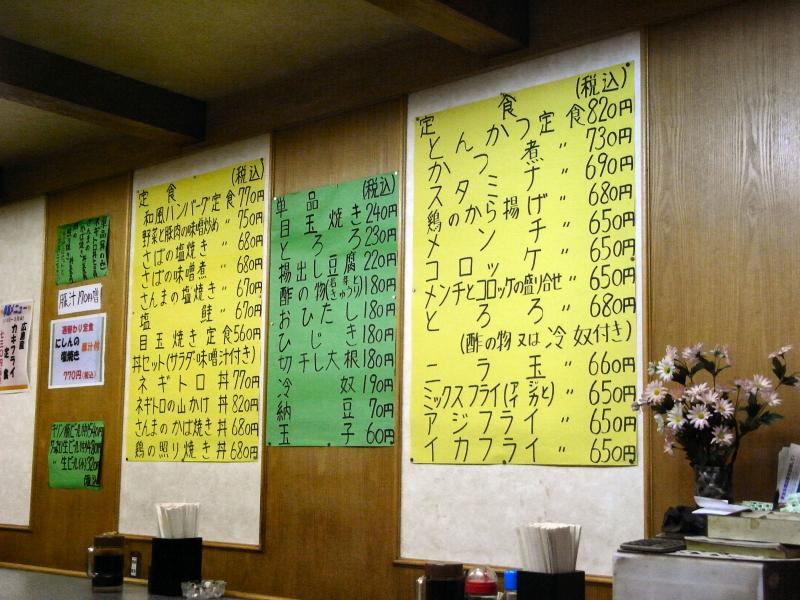 定食 (税込)
とんかつ定食 820円
かつ煮 〃 730円
スタミナ 〃 690円
鶏のから揚げ 〃 680円
メンチ 〃 650円
コロッケ 〃 650円
メンチとコロッケの盛り合せ 〃 650円
とろろ 〃 680円
(酢の物又は冷奴付き)
ニラ玉 〃 660円
ミックスフライ 〃 650円
アジフライ 〃 650円
イカフライ 〃 650円
単品 (税込)
目玉焼き 240円
とろろ 230円
揚出し豆腐 220円
酢の物 180円
おひたし 180円
ひじき 180円
切干し大根 180円
冷奴 190円
納豆 70円
玉子 60円
定食 (税込)
和風ハンバーグ定食 770円
野菜と豚肉の味噌炒め 〃 750円
さばの塩焼き 〃 680円
さばの味噌煮 〃 680円
さんまの塩焼き 〃 670円
塩鮭 〃 670円
目玉焼き定食 560円
丼セット(サラダ・味噌汁付き)
ネギトロ丼 770円
ネギトロの山かけ丼 820円
さんまのかば焼き丼 680円
鶏の照り焼き丼 680円
豚汁170円増
週替わり定食
にしんの塩焼き
豚汁付
770円(税込)
メニュー
広島産
カキフライ定食